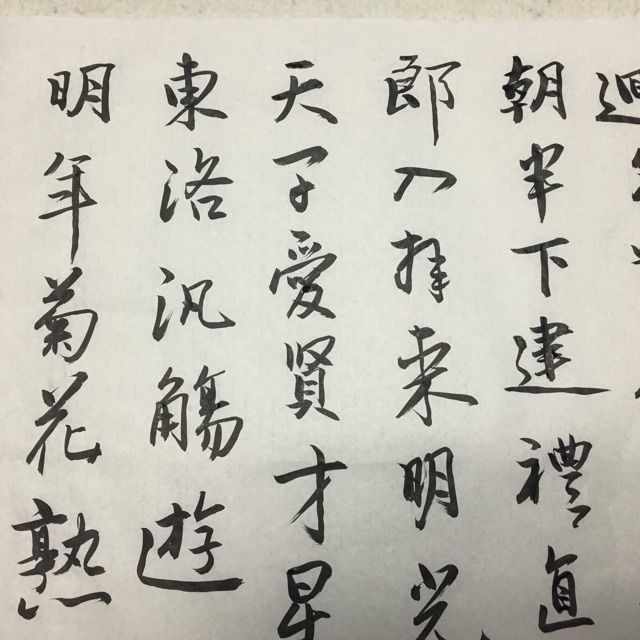 迴
朝半下建禮直
郎入拜来明光
天子愛賢才星
東洛汎觴遊
明年菊花熟